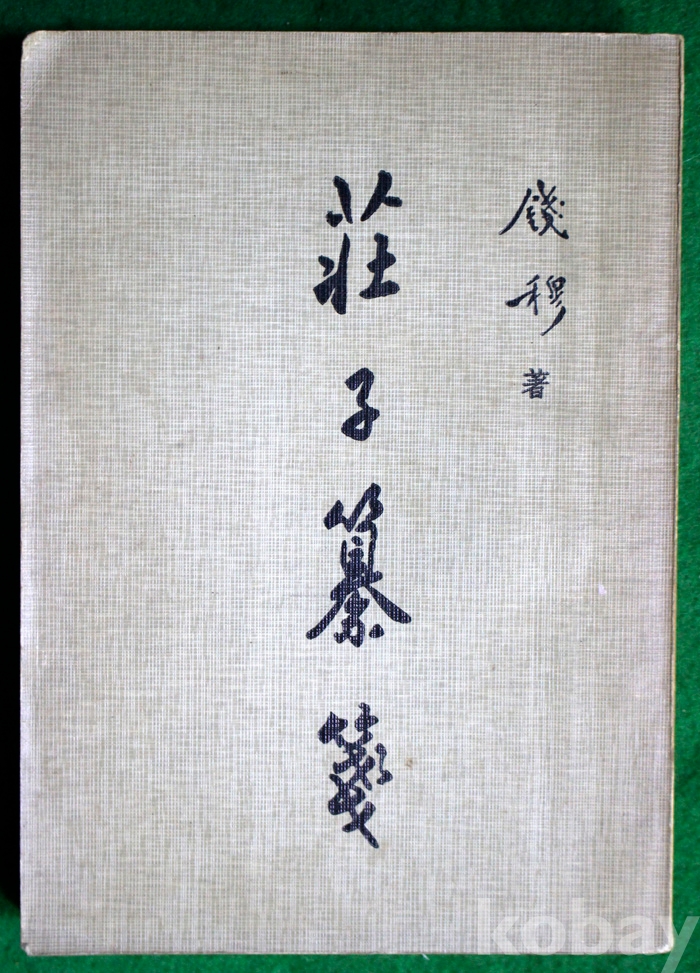 錢穆著
莊子纂箋
kobay